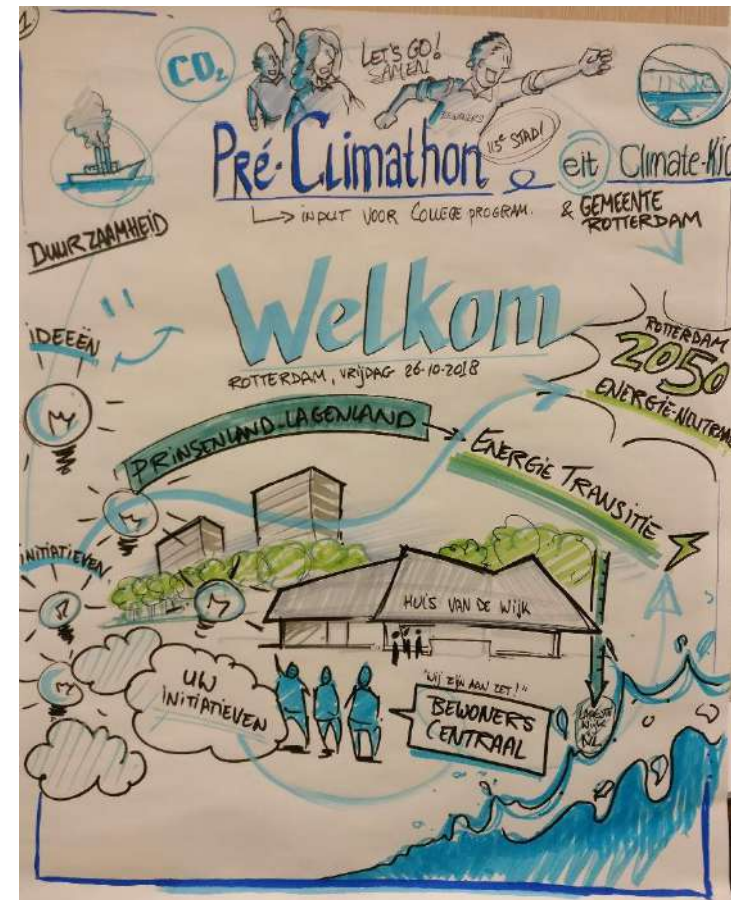 1
CO₂
LET'S GO!
SAMEN
BEWONERS
113e STAD!
PRÉ-CLIMATHON
eit Climate-KIC
↳ INPUT VOOR COLLEGE PROGRAM.
& GEMEENTE
ROTTERDAM
DUURZAAMHEID
Welkom
ROTTERDAM, VRIJDAG 26-10-2018
IDEEËN
ROTTERDAM
2050
ENERGIE-NEUTRAAL
PRINSENLAND-LAGENLAND
ENERGIE TRANSITIE
INITIATIEVEN
HUIS VAN DE WIJK
UW
INITIATIEVEN
"WIJ ZIJN AAN ZET!"
BEWONERS
CENTRAAL
LAAGSTE
WIJK
NL